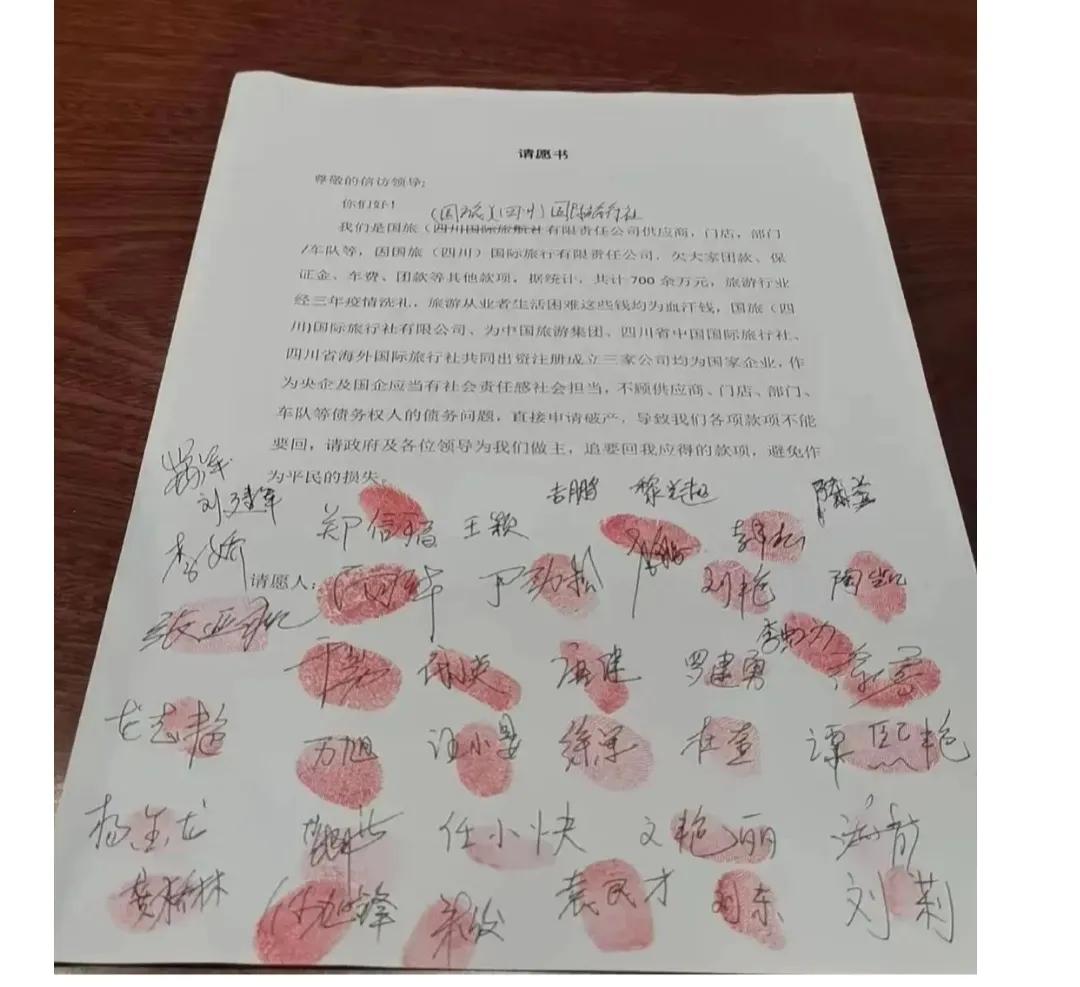 请愿书
尊敬的信访领导:
你们好!
(国旅(四川)国际旅行社
我们是国旅(四川国际旅航社有限责任公司供应商,门店,部门
/车队等,因国旅(四川)国际旅行有限责任公司,欠大家团款、保
证金、车费、团款等其他款项,据统计,共计700余万元,旅游行业
经三年疫情洗礼,旅游从业者生活困难这些钱均为血汗钱,国旅(四
川)国际旅行社有限公司、为中国旅游集团、四川省中国国际旅行社、
四川省海外国际旅行社共同出资注册成立三家公司均为国家企业,作
为央企及国企应当有社会责任感社会担当,不顾供应商、门店、部门、
车队等债务权人的债务问题,直接申请破产,导致我们各项款项不能
要回,请政府及各位领导为我们做主,追要回我应得的款项,避免作
为平民的损失。
吉鹏 黎兰超
刘建军
郑信福 王颖
李娇
请愿人: 尹劲松 刘艳 陶凯
张亚
唐建 罗建勇
龙志艳 万旭 汪小昱 徐军 杜萱 谭熙艳
杨金龙 任小快 文艳丽
袁民才 刘东 刘莉